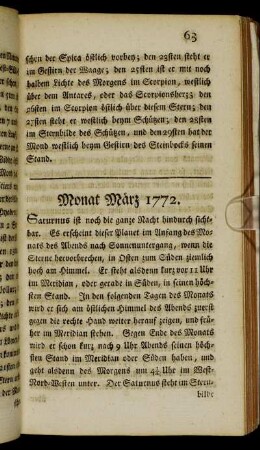 63
schen der Spica östlich vorbey; den 23sten steht er
im Gestirn der Waage; den 25sten ist er mit noch
halbem Lichte des Morgens im Scorpion, westlich
über dem Antares, oder das Scorpionsherz; den
26sten im Scorpion östlich über diesem Stern; den
27sten steht er westlich beym Schützen; den 28sten
im Sternbilde des Schützen, und den 29sten hat der
Mond westlich beym Gestirn des Steinbocks seinen
Stand.
Monat März 1772.
Saturnus ist noch die ganze Nacht hindurch sicht-
bar. Es erscheint dieser Planet im Anfang des Mo-
nats des Abends nach Sonnenuntergang, wenn die
Sterne hervorbrechen, in Osten zum Süden ziemlich
hoch am Himmel. Er steht alsdenn kurz vor 12 Uhr
im Meridian, oder gerade in Süden, in seinen höch-
sten Stand. In den folgenden Tagen des Monats
wird er sich am östlichen Himmel des Abends zuerst
gegen die rechte Hand weiter herauf zeigen, und frü-
her im Meridian stehen. Gegen Ende des Monats
wird er schon kurz nach 9 Uhr Abends seinen höch-
sten Stand im Meridian oder Süden haben, und
geht alsdenn des Morgens um 4½ Uhr im West-
Nord-Westen unter. Der Saturnus steht im Stern-
bilde